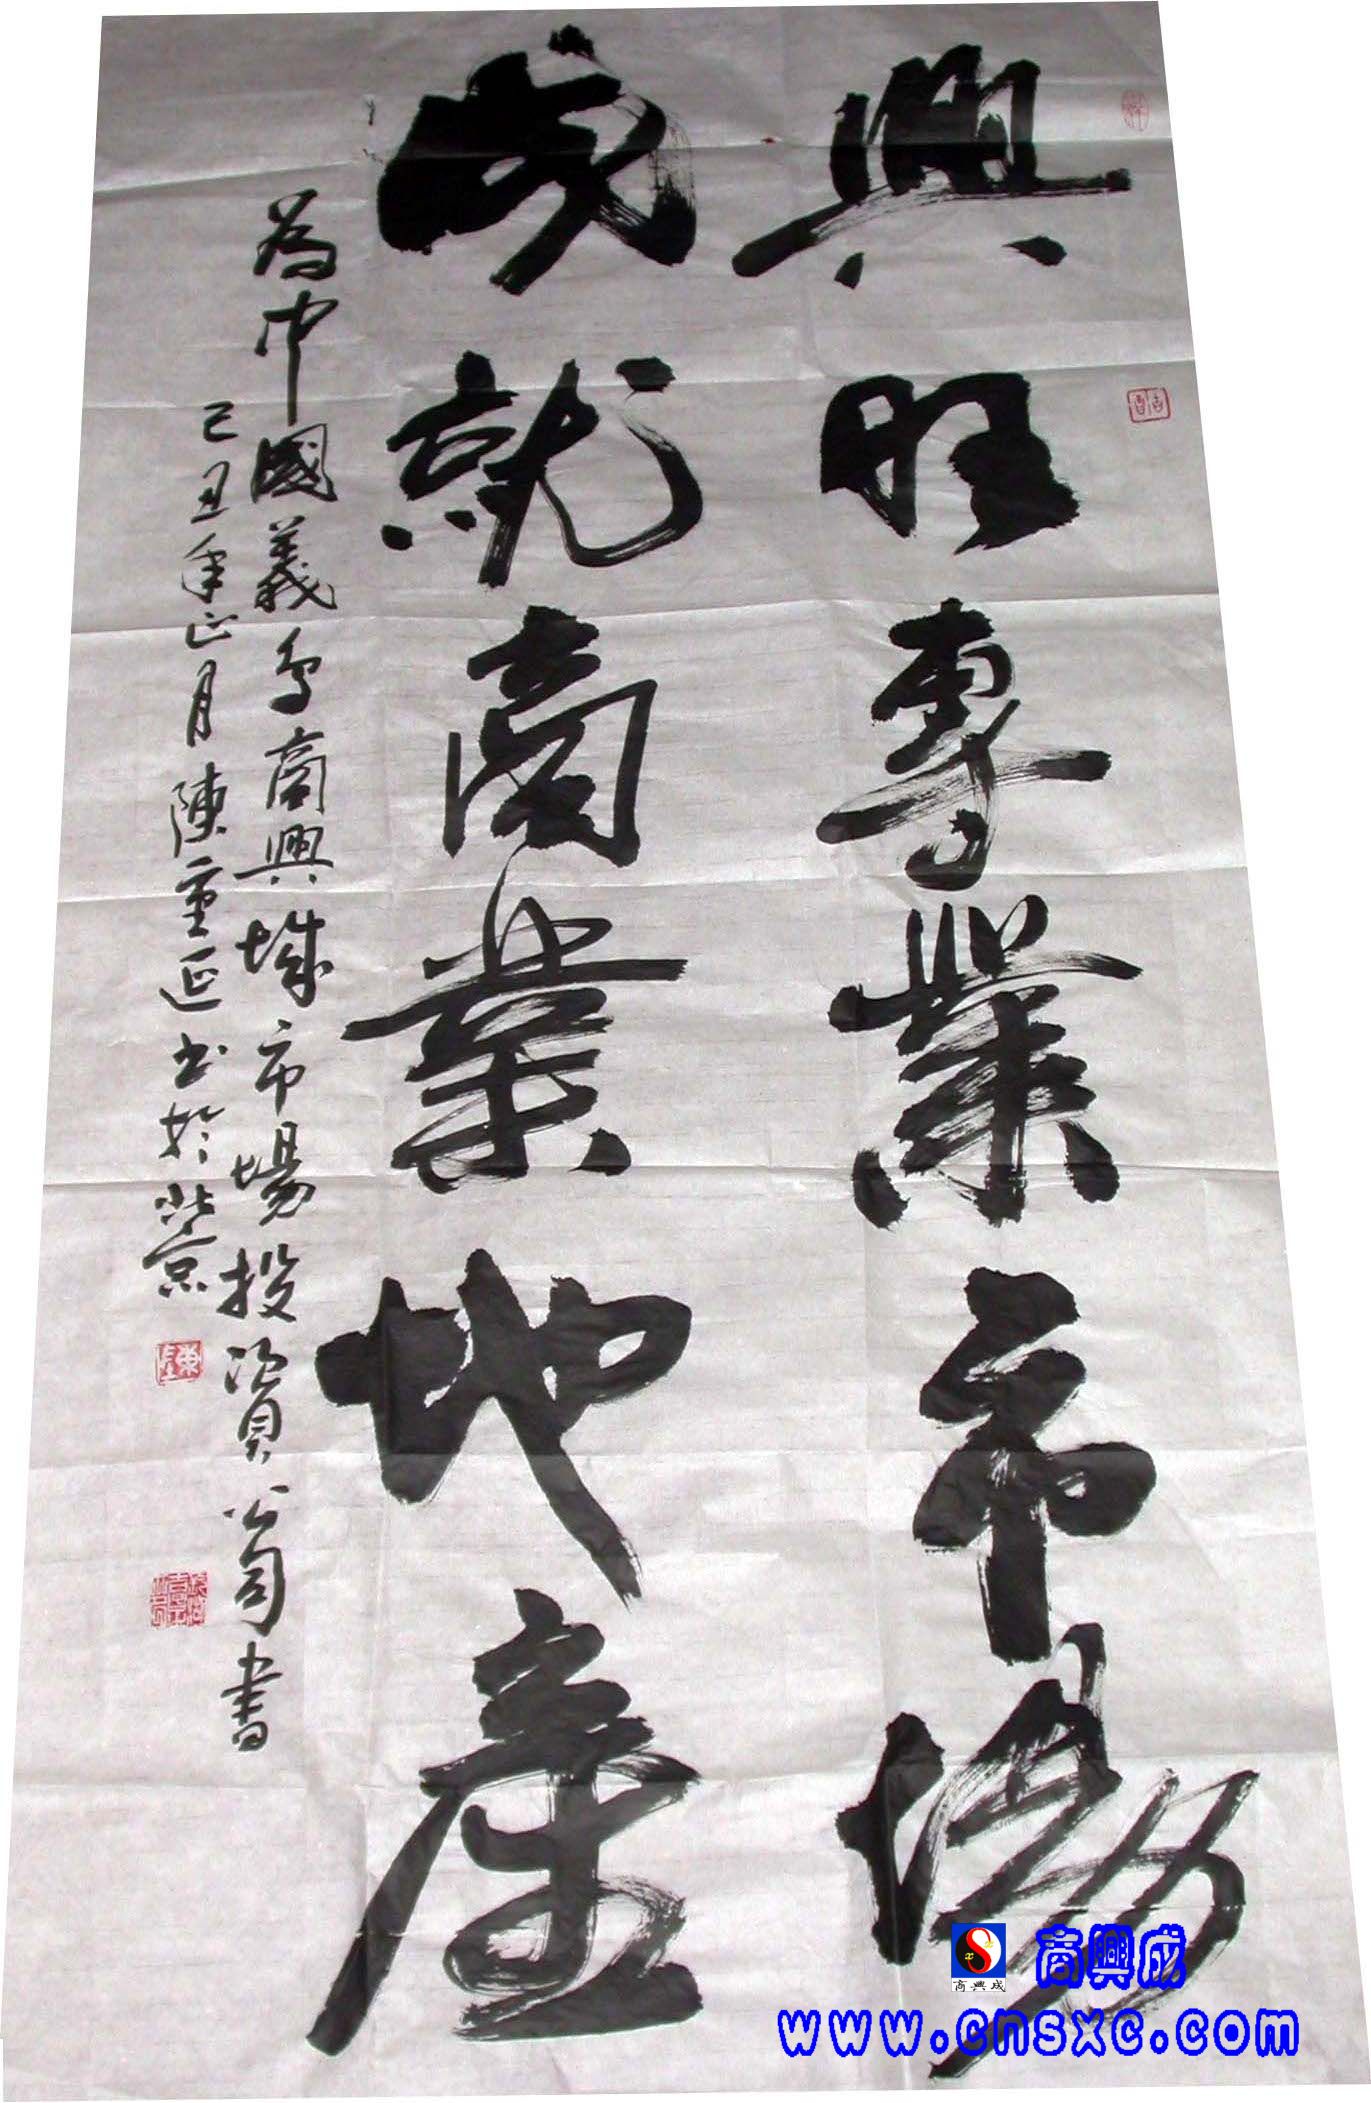 興旺專業市場
成就商業地產
為中國義烏商興城市場投資公司書
己丑年正月陳重延书於北京
商興成
商興成
www.cnsxc.com